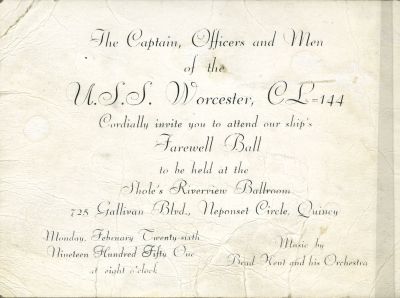 The Captain, Officers and Men
of the
U.S.S. Worcester, CL-144
Cordially invite you to attend our ship's
Farewell Ball
to be held at the
Shole's Riverview Ballroom
725 Gallivan Blvd., Neponset Circle, Quincy
Monday, February Twenty-sixth
Nineteen Hundred Fifty One
at eight o'clock
Music by
Brad Kent and his Orchestra